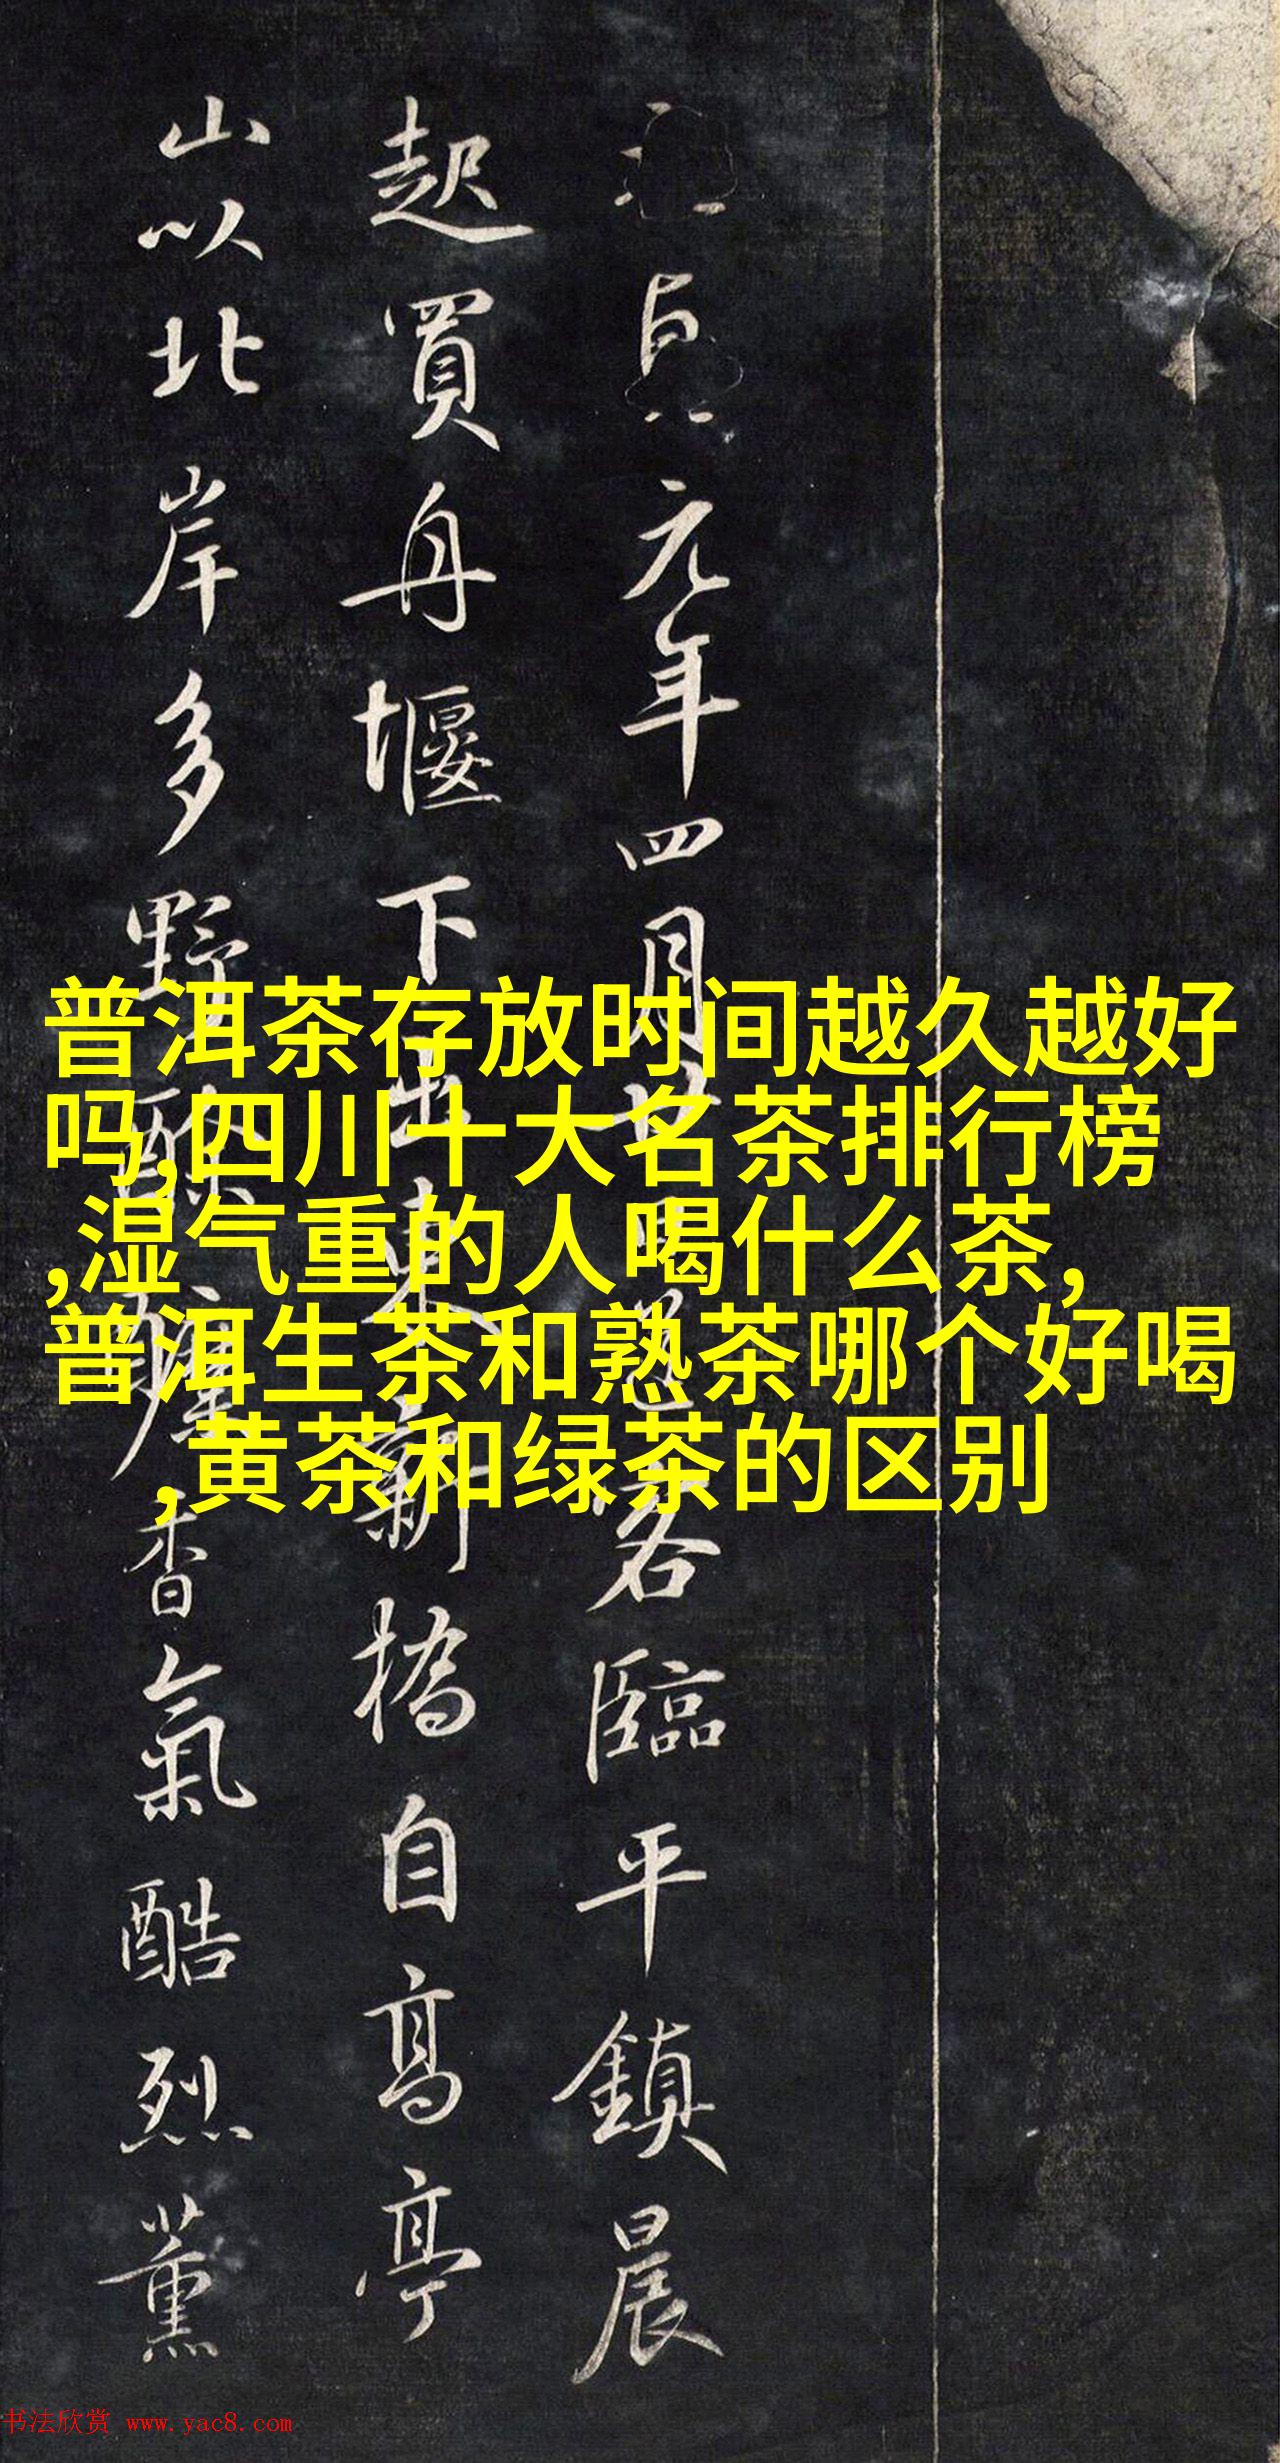 普洱茶存放时间越久越好
吗,四川十大名茶排行榜
,湿气重的人喝什么茶,
普洱生茶和熟茶哪个好喝
,黄茶和绿茶的区别
元年四月廿日客臨平鎮晨
起買舟堰下出東新橋自高亭
山以北岸多野酴醾香氣酷烈薰
书法欣赏 www.yac8.com